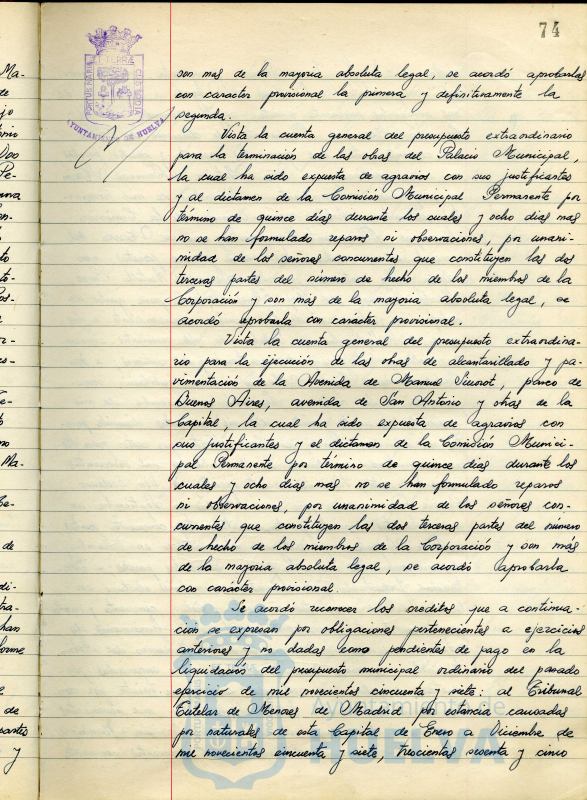 74
son mas de la mayoria absoluta legal, se acordó aprobarlas
con caracter provisional la primera y definitivamente la
segunda.
Vista la cuenta general del presupuesto extraordinario
para la terminación de las obras del Palacio Municipal,
la cual ha sido expuesta de agravios con sus justificantes
y al dictamen de la Comisión Municipal Permanente por
término de quince dias durante los cuales y ocho dias mas
no se han formulado reparos ni observaciones, por unani-
midad de los señores concurrentes que constituyen las dos
terceras partes del número de hecho de los miembros de la
Corporación y son más de la mayoria absoluta legal, se
acordó aprobarla con carácter provisional.
Vista la cuenta general del presupuesto extraordina-
rio para la ejecución de las obras de alcantarillado y pa-
vimentación de la Avenida de Manuel Siurot, paseo de
Buenos Aires, avenida de San Antonio y otras de la
Capital, la cual ha sido expuesta de agravios con
sus justificantes y el dictamen de la Comisión Munici-
pal Permanente por término de quince dias durante los
cuales y ocho dias mas no se han formulado reparos
ni observaciones, por unanimidad de los señores con-
currentes que constituyen las dos terceras partes del número
de hecho de los miembros de la Corporación y son más
de la mayoria absoluta legal, se acordó aprobarla
con carácter provisional.
Se acordó reconocer los créditos que a continua-
ción se expresan por obligaciones pertenecientes a ejercicios
anteriores y no dadas como pendientes de pago en la
liquidación del presupuesto municipal ordinario del pasado
ejercicio de mil novecientos cincuenta y siete: al Tribunal
Tutelar de Menores de Madrid por estancia causadas
por naturales de esta Capital de Enero a Diciembre de
mil novecientos cincuenta y siete, trescientas sesenta y cinco
AYUNTAMIENTO DE HUELVA
Ayuntamiento de
HUELVA